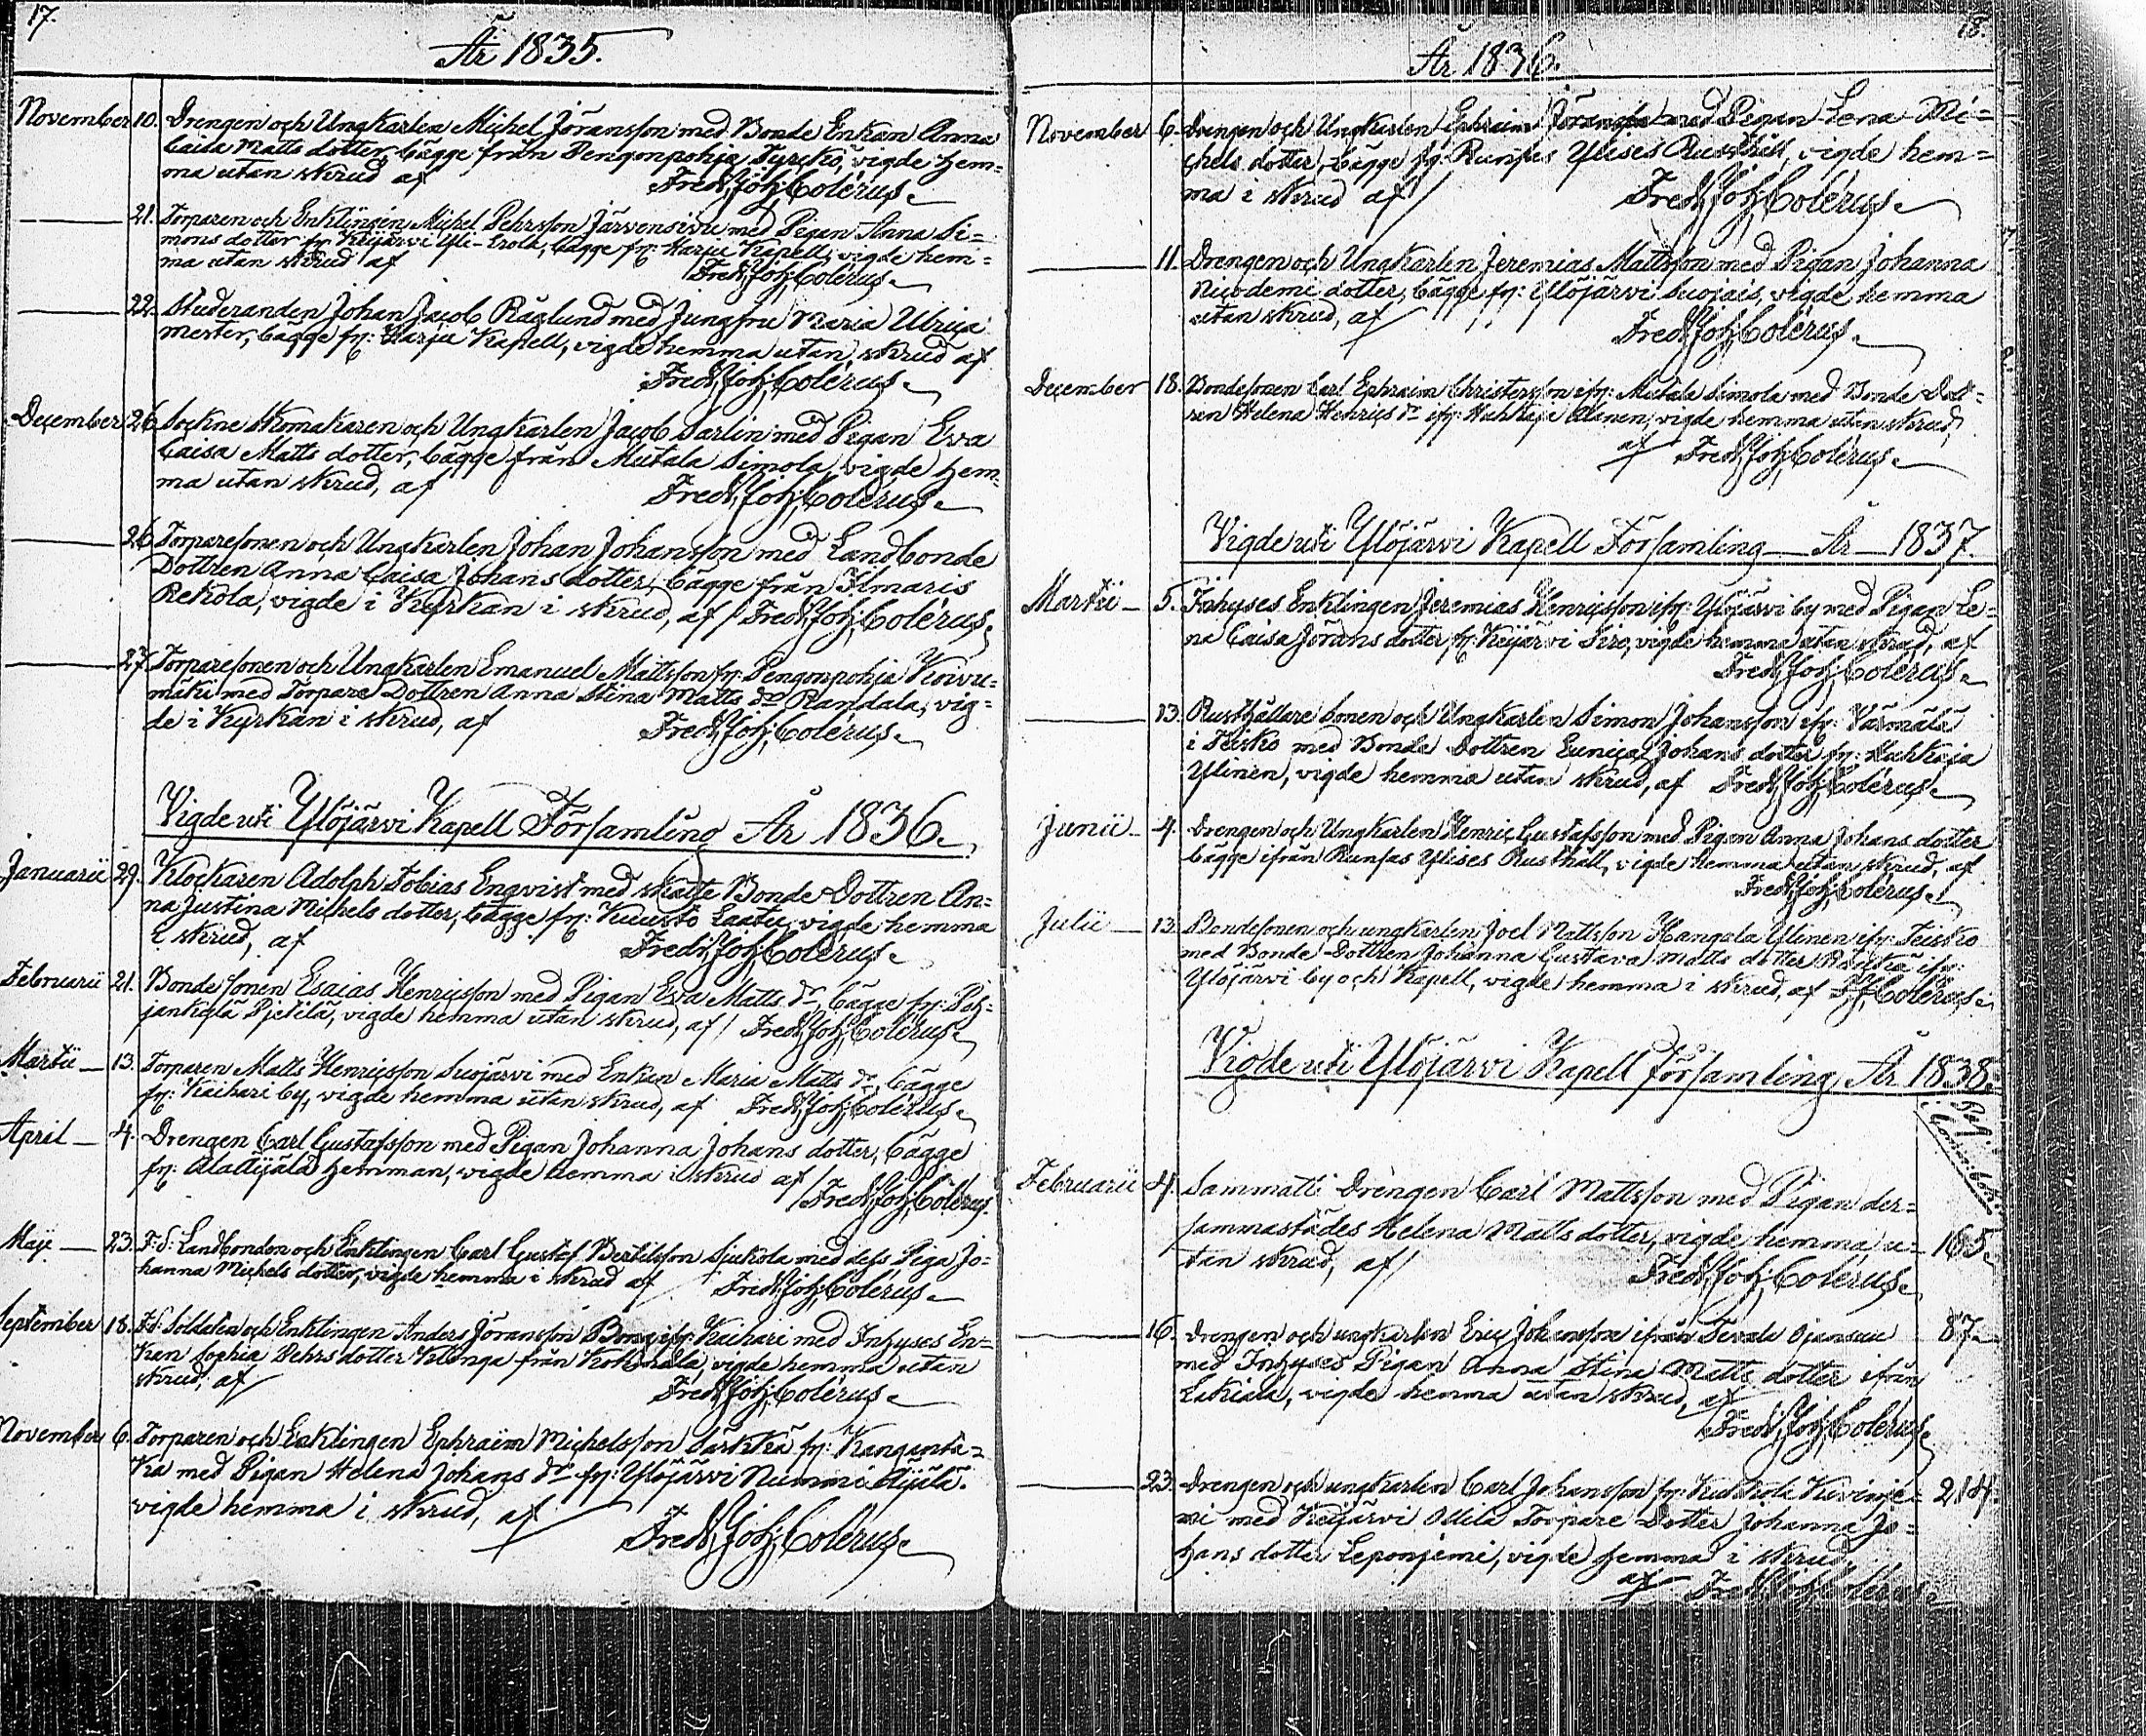 17.
År 1835.
November 10. Drengen och Ungkarlen Michel Jöransson med Bonde Enkan Anna
Caisa Matts dotter, bägge från Pengonpohja Tyrckö, vigde hem=
ma utan skrud af Fredr: Joh: Colérus.
21. Torparen och Enklingen Michel Pehrsson Järvensivu med Pigan Anna Si=
mons dotter fr: Keijärvi Yli-Erola, bägge fr: Harju Kapell, vigde hem=
ma utan skrud af Fredr: Joh: Colérus.
22. Studeranden Johan Jacob Råglund med Jungfru Maria Ulrica
mester, bägge fr: Harju Kapell, vigde hemma utan skrud af
Fredr: Joh: Colérus.
December 26. Sockne Skomakaren och Ungkarlen Jacob Sarlin med Pigan Eva
Caisa Matts dotter, bägge från Mutala Simola, vigde hem=
ma utan skrud, af Fredr: Joh: Colérus.
26. Torparesonen och Ungkarlen Johan Johansson med Landbonde
Dottren Anna Caisa Johans dotter, bägge från Ilmaris
Rekola, vigde i Kyrkan i skrud, af / Fredr: Joh: Colérus.
27. Torparesonen och Ungkarlen Emanuel Mattsson fr: Pengonpohja Koivu=
mäki med Torpare Dottren Anna Stina Matts dr Randala, vig=
de i Kyrkan i skrud, af Fredr: Joh: Colérus.
Vigde uti Ylöjärvi Kapell Församling År 1836.
Januarii 29. Klockaren Adolph Tobias Enqvist med skatte Bonde Dottren An=
na Justina Michels dotter, bägge fr: Kuusto Laatu, vigde hemma
i skrud, af Fredr: Joh: Colérus.
Februarii 21. Bonde sonen Esaias Henricsson med Pigan Eva Matts dr, bägge fr: Poh=
jankylä Pjetilä, vigde hemma utan skrud, af / Fredr: Joh: Colérus.
Martii 13. Torparen Matts Henricsson Suojärvi med Enkan Maria Matts dr, bägge
fr: Kaihari by, vigde hemma utan skrud, af Fredr: Joh: Colérus.
April 4. Drengen Carl Gustafsson med Pigan Johanna Johans dotter, bägge
fr: Ala Äijälä hemman, vigde hemma i skrud af
/ Fredr: Joh: Colérus.
Maji 23. F: d: Landbonden och Enklingen Carl Gustaf Bertilsson Sjukola med dess Piga Jo=
hanna Michels dotter, vigde hemma i skrud af Fredr: Joh: Colérus.
September 18. F d: Soldaten och Enklingen Anders Jöransson ifr: Kaihari med Inhyses En=
kan Sophia Pehrs dotter Klinga från vigde hemma utan
skrud, af Fredr: Joh: Colérus.
November 6. Torparen och Enklingen Ephraim Michelsson Särkkä fr: Kanganta=
ka med Pigan Helena Johans dr fr: Ylöjärvi Nummi Äijälä.
vigde hemma i skrud, af Fredr: Joh: Colérus.
18.
År 1836.
November 6. Drengen och Ungkarlen Ephraim Jöransson med Pigan Lena Mi=
chels dotter, bägge fr: Runsas Ylises Rusthåll, vigde hem=
ma i skrud af / Fredr: Joh: Colérus.
11. Drengen och Ungkarlen Jeremias Mattsson med Pigan Johanna
Nicodemi dotter, bägge fr: Ylöjärvi vigde hemma
utan skrud, af Fredr: Joh: Colérus.
December 18. Bondesonen Carl Ephraim Christersson ifr: Mutala Simola med Bonde Dott=
ren Helena Henrics dr ifr: Hahkaja Alanen, vigde hemma utan skrud,
af Fredr: Joh: Colérus.
Vigde uti Ylöjärvi Kapell Församling År 1837.
Martii 5. Inhyses Enklingen Jeremias Henricsson ifr: Ylöjärvi by med Pigan Le=
na Caisa Jörans dotter fr: Keijärvi Siro, vigde hemma utan skrud, af
Fredr: Joh: Colérus.
13. Rusthållare sonen och Ungkarlen Simon Johansson ifr: Värmälä
i Teisko med Bonde Dottren Eunica Johans dotter fr: Hahkaja
Ylinen, vigde hemma utan skrud, af Fredr: Joh: Colérus.
Junii 4. Drengen och Ungkarlen Henric Gustafsson med Pigan Anna Johans dotter
bägge ifrån Runsas Ylises Rusthåll, vigde hemma utan skrud, af
Fredr: Joh: Colérus.
Julii 13. Bondesonen och ungkarlen Joel Mattsson Hangala Ylinen ifr: Teisko
med Bonde Dottren Johanna Gustava Matts dotter ifr:
Ylöjärvi by och Kapell, vigde hemma i skrud, af F: J: Colérus.
Vigde uti Ylöjärvi Kapell Församling År 1838.
Februarii 4. Sammatti Drengen Carl Mattsson med Pigan der=
sammastädes Helena Matts dotter, vigde hemma u= 165.
tan skrud, af / Fredr: Joh: Colérus.
16. Drengen och ungkarlen Eric Johansson ifrån Tevala Ojansuu 87.
med Inhyses Pigan Anna Stina Matts dotter ifrån
Lakiala, vigde hemma utan skrud, af
Fredr: Joh: Colérus.
23. Drengen och ungkarlen Carl Johansson fr: 214.
med Keijärvi Ollila Torpare Dotter Johanna Jo=
hans dotter Leponjemi, vigde hemma i skrud,
af Fredr: Joh: Colérus.